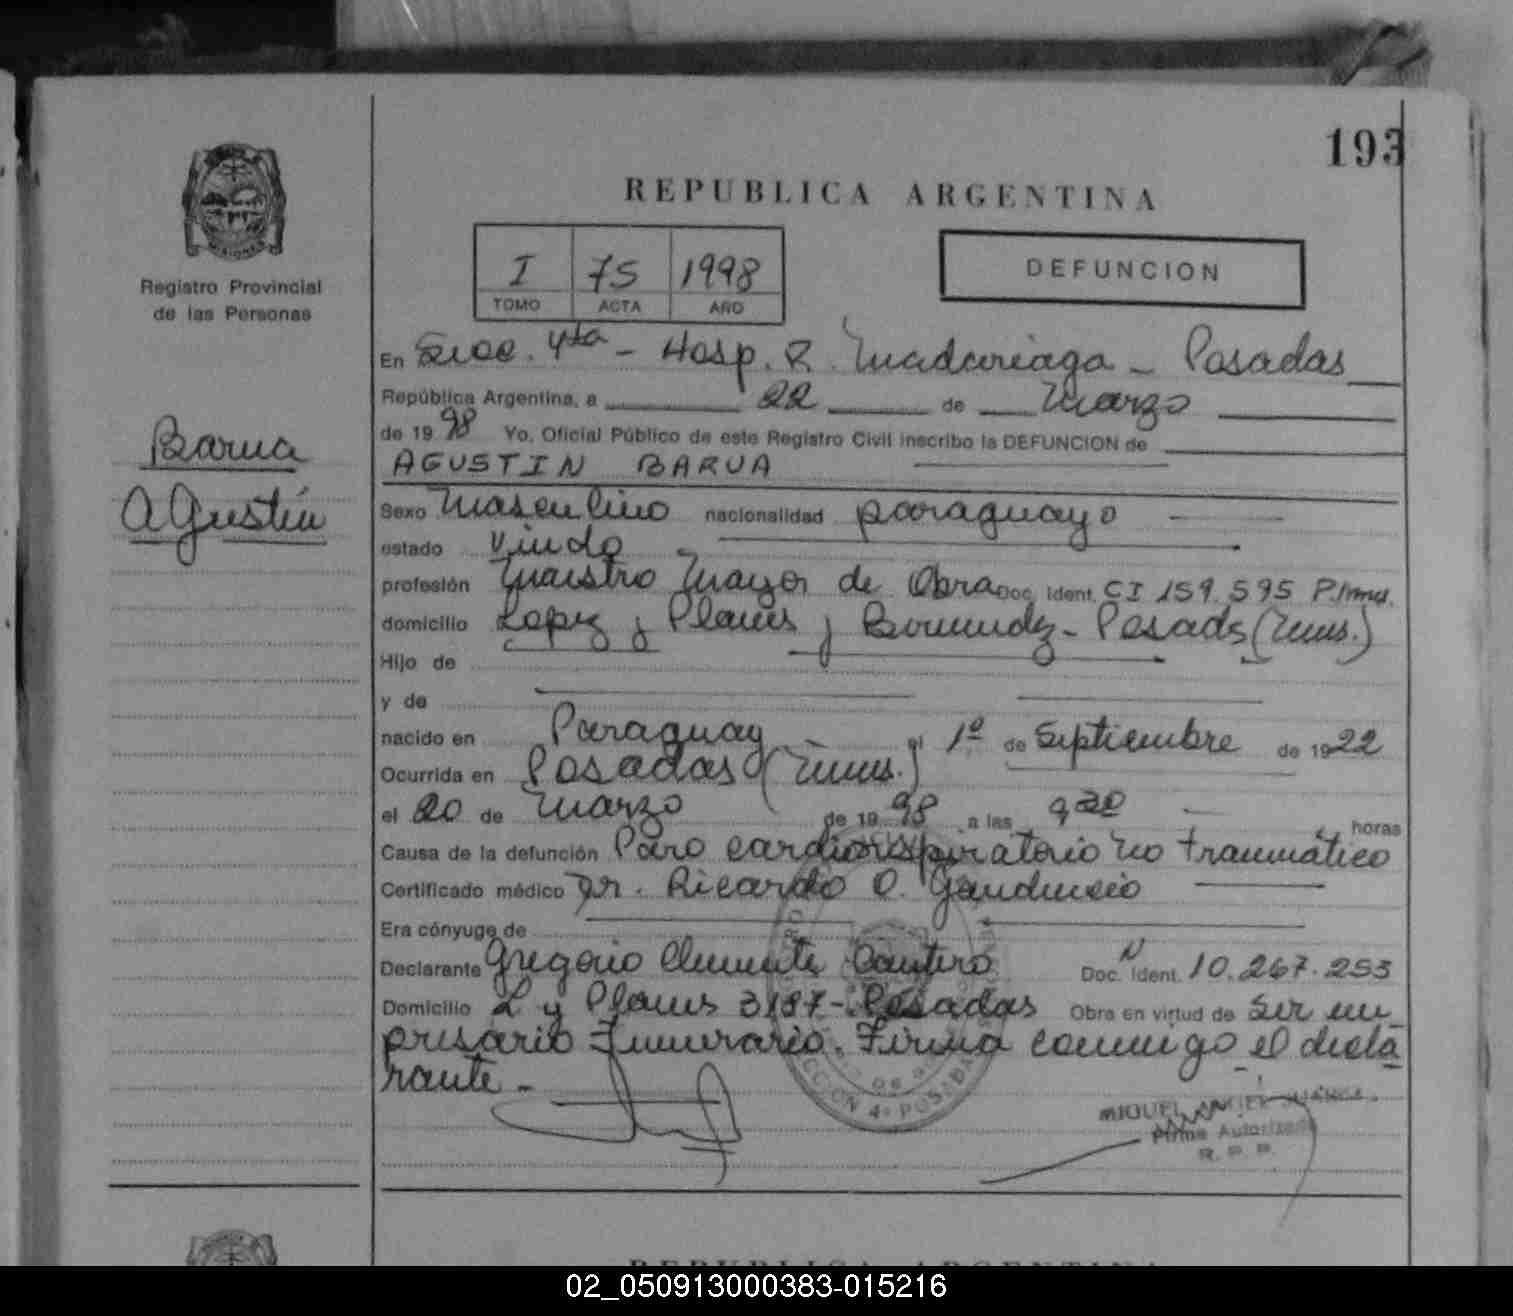 193
REPUBLICA ARGENTINA
I 75 1998
TOMO ACTA AÑO
DEFUNCION
Registro Provincial
de las Personas
Barua
Agustín
En Secc. 4ta - Hosp. R. Madariaga - Posadas
República Argentina, a 22 de Marzo
de 1998 Yo, Oficial Público de este Registro Civil inscribo la DEFUNCION de
AGUSTIN BARUA
Sexo Masculino nacionalidad paraguayo
estado Viudo
profesión Maestro Mayor de Obra Doc. Ident. CI 159.595 P.Mnes.
domicilio Lopez y Planes y Bermudez - Posadas (Mnes.)
Hijo de
y de
nacido en Paraguay el 1º de Septiembre de 1922
Ocurrida en Posadas (Mnes.)
el 20 de Marzo de 1998 a las 9 20 horas
Causa de la defunción Paro cardiorrespiratorio no traumático
Certificado médico Dr. Ricardo O. Gaudencio
Era cónyuge de
Declarante Gregorio Clemente Cantero Doc. Ident. N 10.267.253
Domicilio L y Planes 3187 - Posadas Obra en virtud de Ser em
presario Funerario. Firma conmigo el decla
rante -
CCION 4ª POSADAS
MIGUEL ANGEL
Firma Autorizada
R. P. P.
REPUBLICA ARGENTINA
02_050913000383-015216